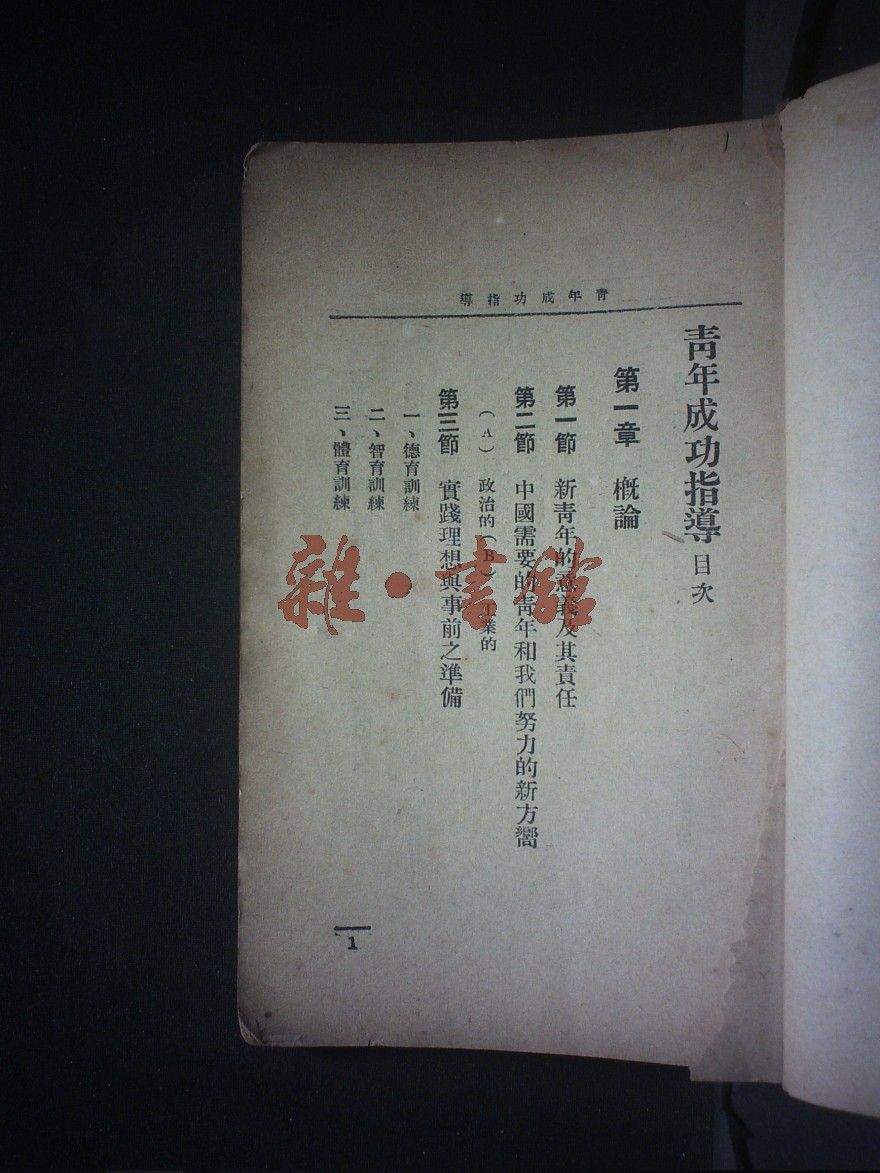 青年成功指導
青年成功指導目次
第一章 概論
第一節 新青年的意義及其責任
第二節 中國需要的青年和我們努力的新方嚮
(A) 政治的(B) 工業的
第三節 實踐理想與事前之準備
一、德育訓練
二、智育訓練
三、體育訓練
1
雜·書館